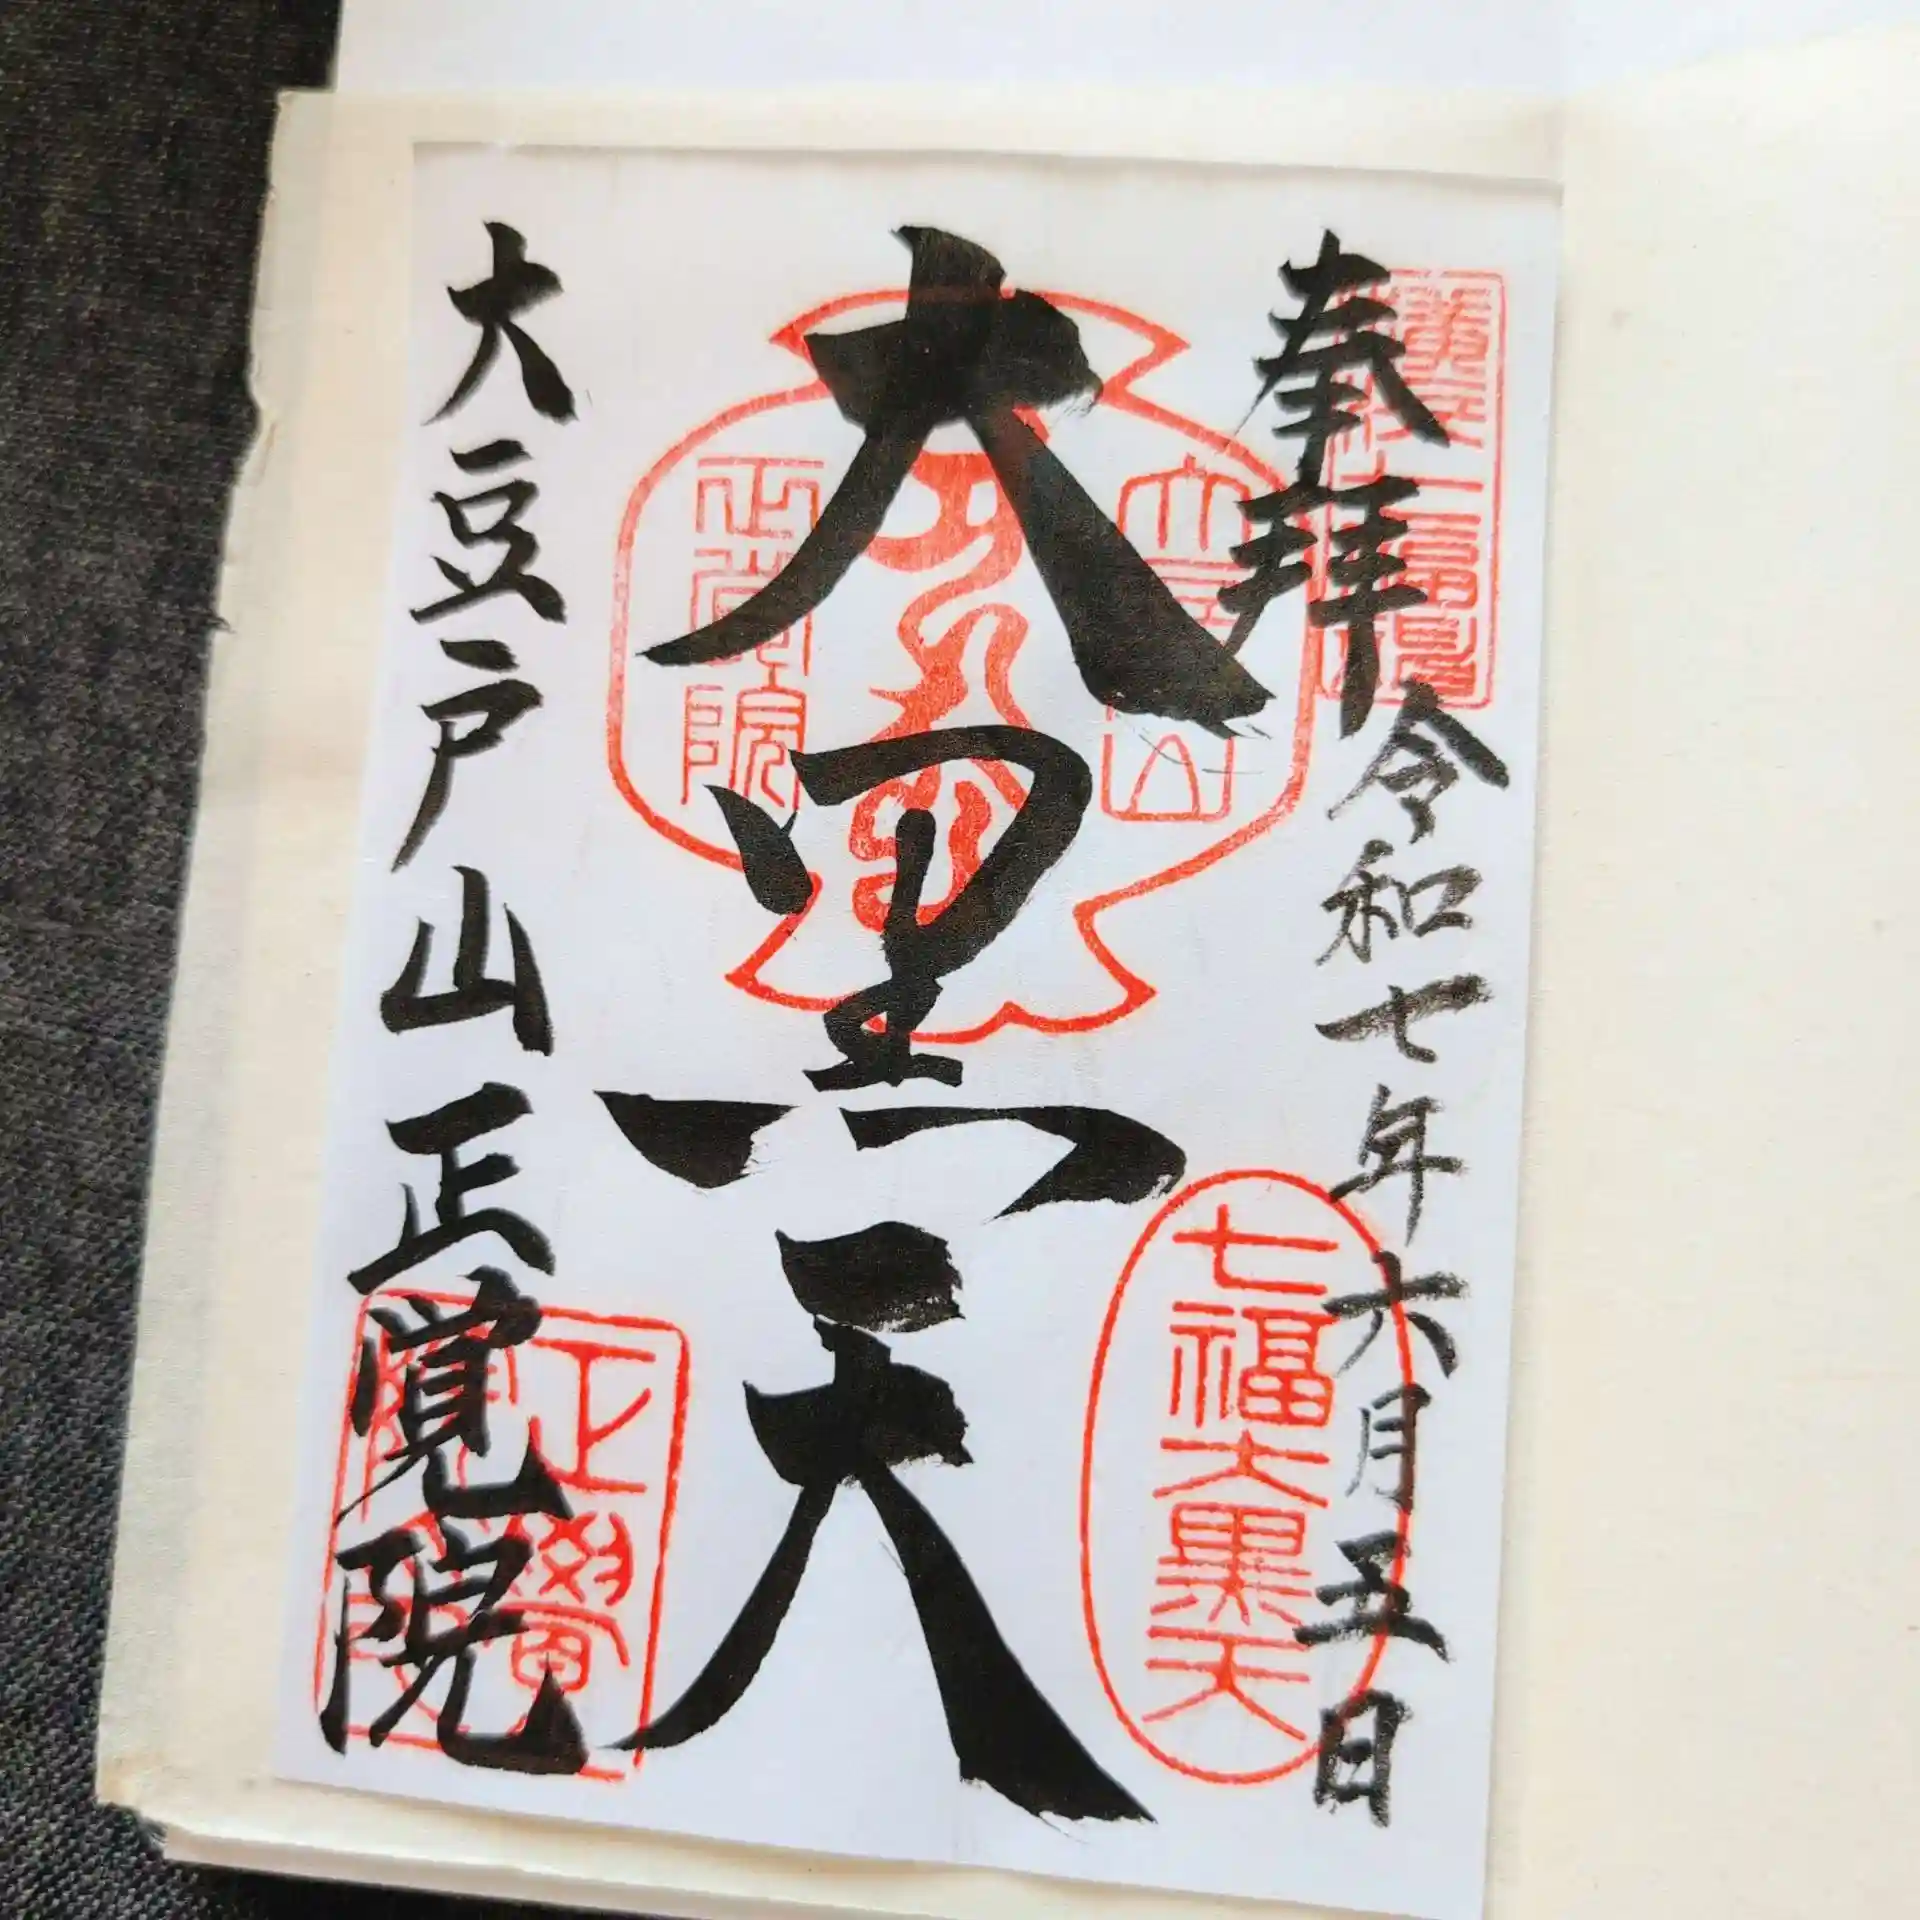 奉拝
令和七年六月五日
大黒天
大豆戸山正覚院
七福大黒天
正覺院